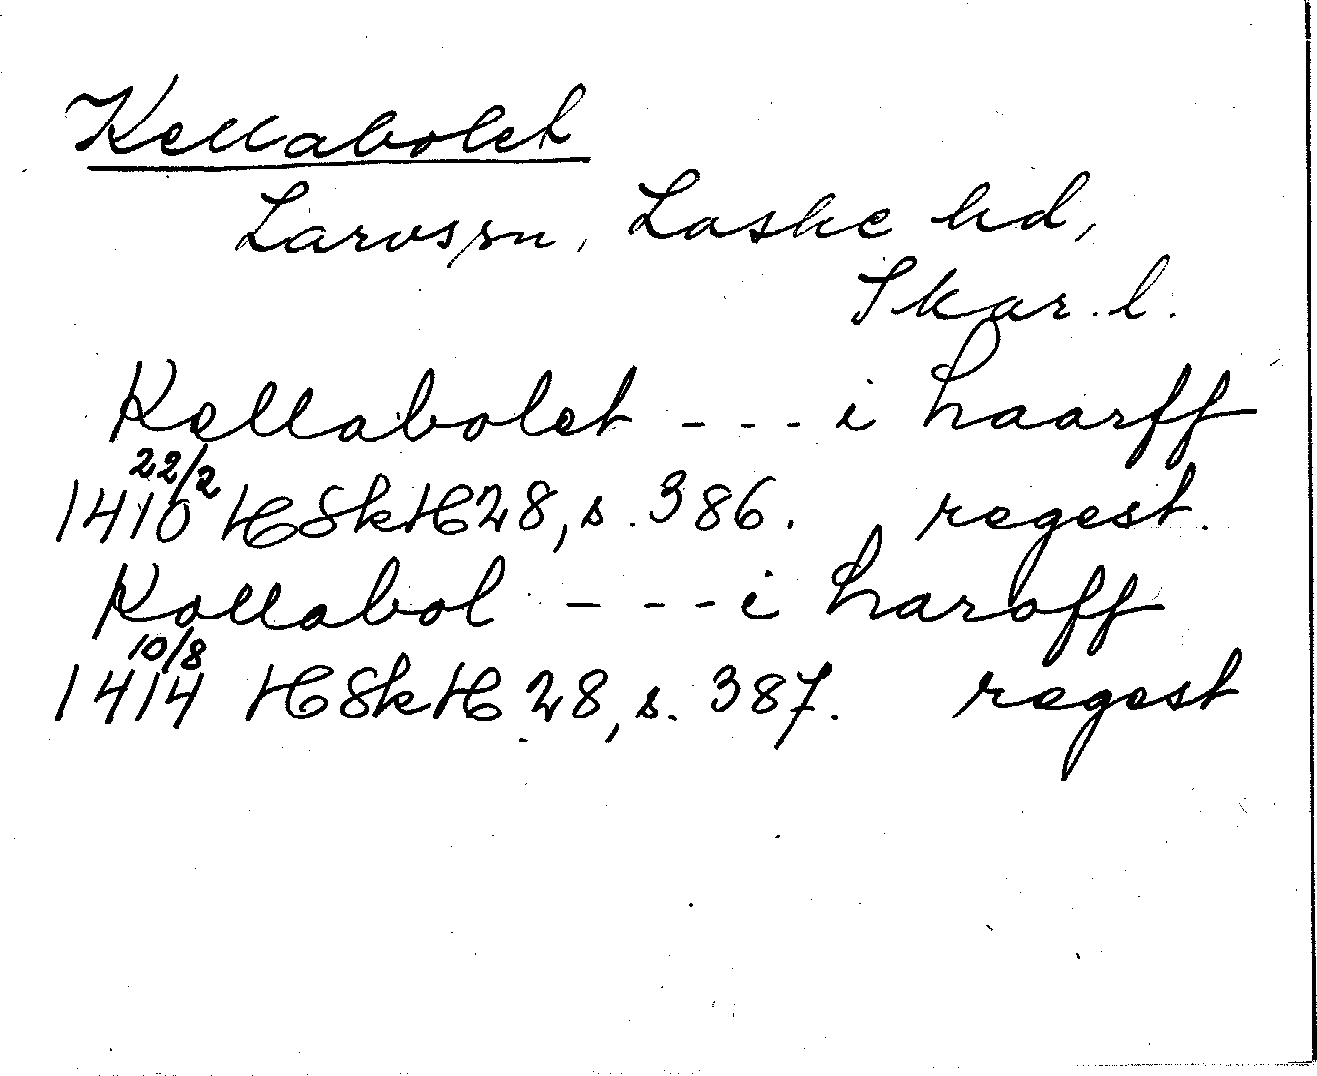 Kellabolet
Larvs sn, Laske hd,
Skar. l.
Kellabolet - - - i haarff
1410 22/2 HSkH 28, s. 386. regest.
Kollabol - - - i haroff
1414 10/8 HSkH 28, s. 387. regest